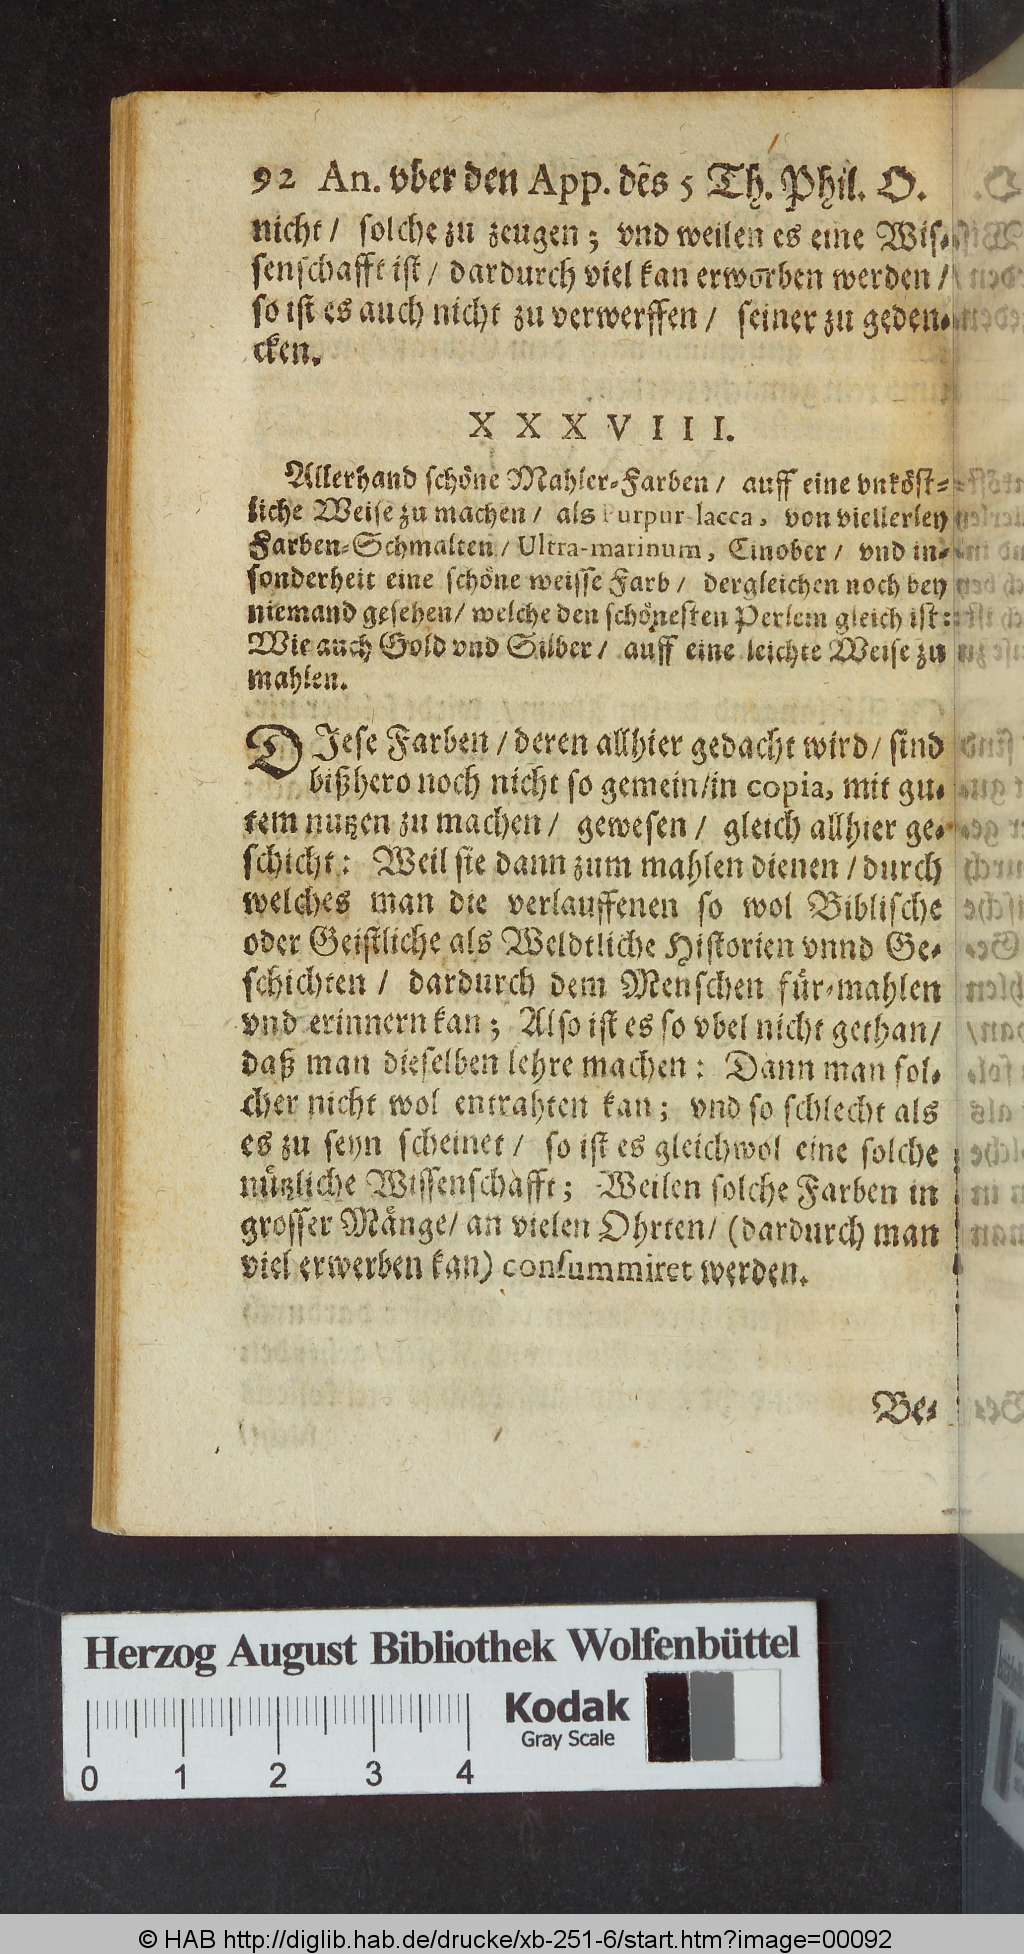 92 An. vber den App. des 5 Th. Phil. O.
nicht / solche zu zeugen; vnd weilen es eine Wis-
senschafft ist / dardurch viel kan erworben werden /
so ist es auch nicht zu verwerffen / seiner zu geden-
cken.
XXXVIII.
Allerhand schöne Mahler-Farben / auff eine vnköst-
liche Weise zu machen / als Purpur-lacca, von viellerley
Farben-Schmalten / Ultra-marinum, Cinober / vnd in-
sonderheit eine schöne weisse Farb / dergleichen noch bey
niemand gesehen / welche den schönesten Perlem gleich ist:
Wie auch Gold vnd Silber / auff eine leichte Weise zu
mahlen.
DIese Farben / deren allhier gedacht wird / sind
bißhero noch nicht so gemein / in copia, mit gu-
tem nutzen zu machen / gewesen / gleich allhier ge-
schicht: Weil sie dann zum mahlen dienen / durch
welches man die verlauffenen so wol Biblische
oder Geistliche als Weldtliche Historien vnnd Ge-
schichten / dardurch dem Menschen für-mahlen
vnd erinnern kan; Also ist es so vbel nicht gethan /
daß man dieselben lehre machen: Dann man sol-
cher nicht wol entrahten kan; vnd so schlecht als
es zu seyn scheinet / so ist es gleichwol eine solche
nützliche Wissenschafft; Weilen solche Farben in
grosser Mänge / an vielen Ohrten / (dardurch man
viel erwerben kan) consummiret werden.
Be-
Herzog August Bibliothek Wolfenbüttel
Kodak
Gray Scale
0 1 2 3 4
© HAB http://diglib.hab.de/drucke/xb-251-6/start.htm?image=00092